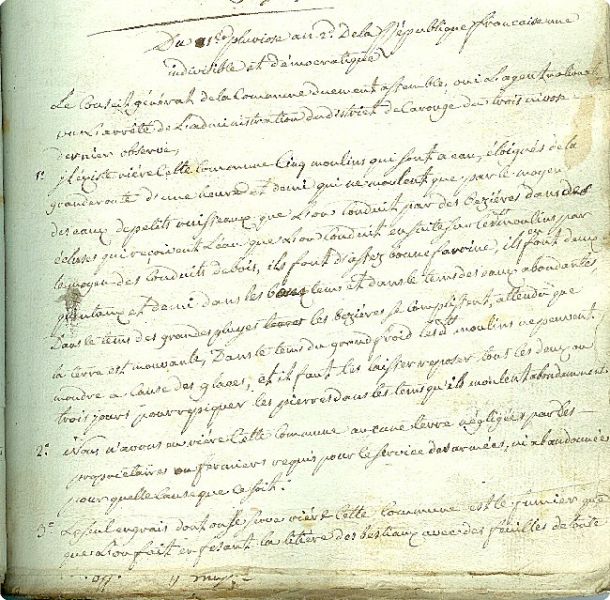 Du 21e pluviose an 2d De la République française une
indivisible et démocratique
Le Conseil général de la Commune duement assemblé, oui l'agent national
sur l'arrêté de L'administration du district de Carouge du trois nivose
dernier observe,
1o il existe rière Cette Commune Cinq moulins qui sont a eau, éloignés de la
grande route d'une heure et demi qui ne moulent que par le moyen
des eaux de petits ruisseaux que L'on Conduit par des bezières dans des
ecluses qui recoivent L'eau que L'on Conduit ensuite sur les moulins par
le moyen des Conduits de bois, ils font d'assez bonne farine, ils en font deux
quintaux et demi dans les bons tems et dans le tems des eaux abondantes,
Dans le tems des grandes pluyes les bezières se Complissent, attendu que
la terre est mouvante, Dans le tems du grand froid les moulins ne peuvent
moudre a Cause des glaces, et il faut les laisser reposer tous les deux ou
trois jours pour repiquer les pierres dans les tems qu'ils moulent abondamment
2o Nous n'avons en rière Cette Commune aucune terre négligée par les
propriétaires ou fermiers requis pour le service des armées, ni abandonnées
pour quelle Cause que Ce soit.
3o Le seul engrais dont on se serve rière Cette Commune est le fumier que
que L'on fait en fesant la litière des bestiaux avec des feuilles de bois